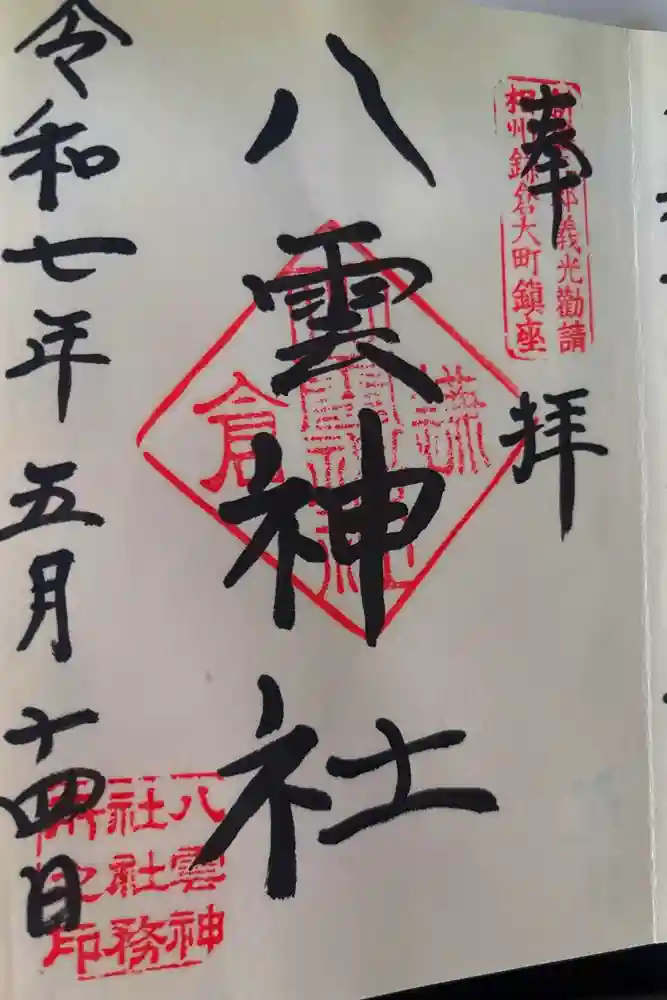 奉拝
義光勸請
相州鎌倉大町鎮座
八雲神社
鎌倉
令和七年五月十四日
八雲神
社社務
所之印